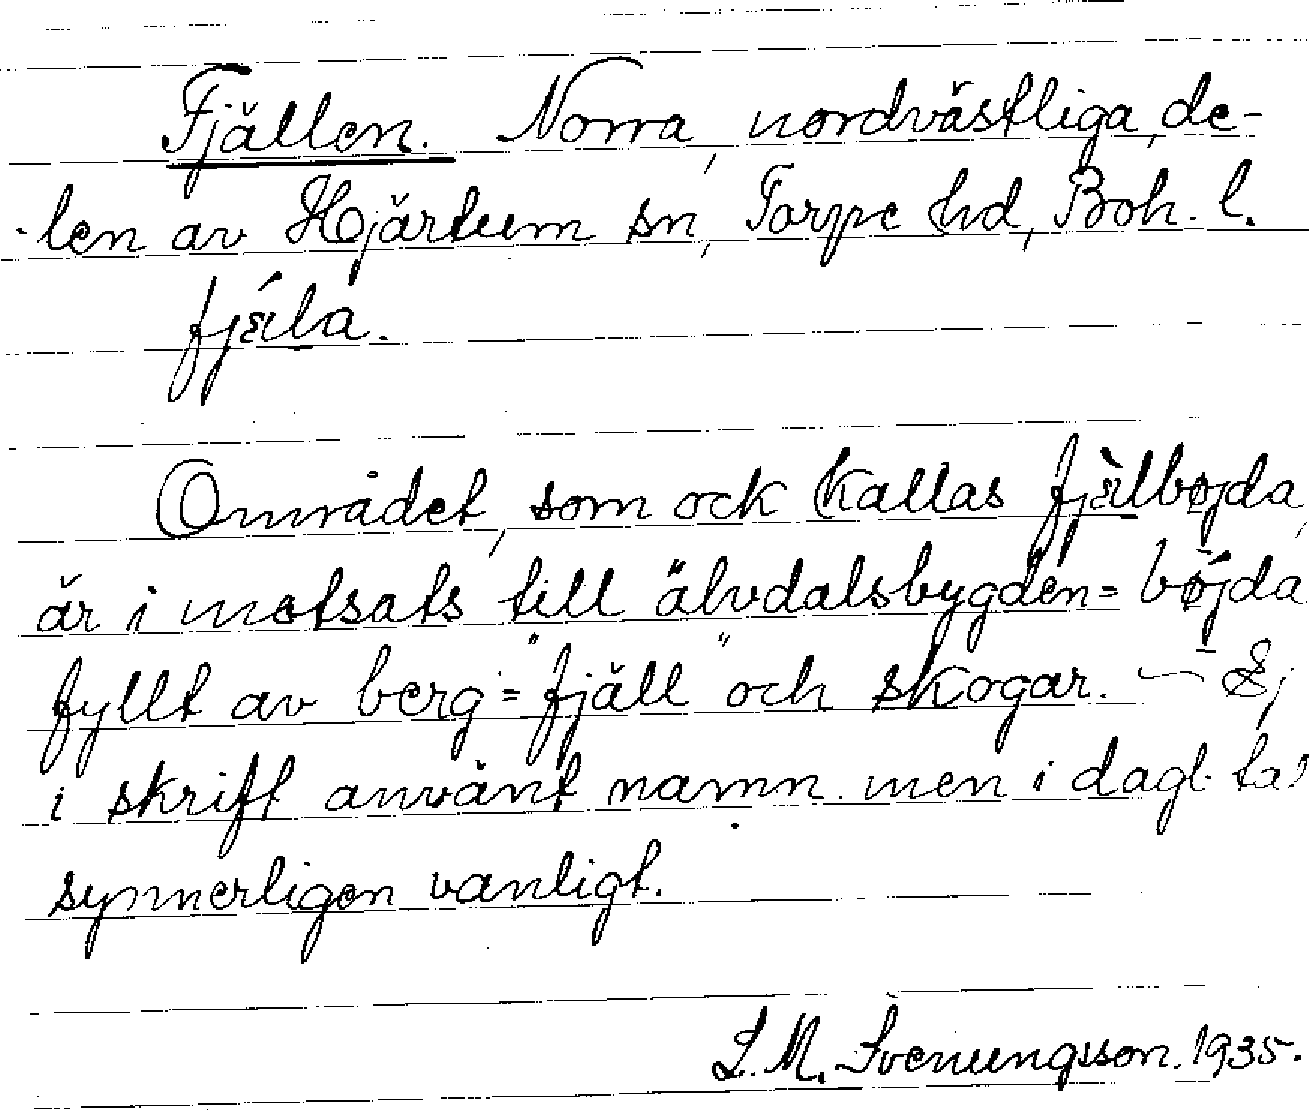 Fjällen. Norra, nordvästliga, de-
len av Hjärtum sn, Torpe hd, Boh. l.
fjä́la.
Området, som ock kallas fjä̀lbøjda,
är i motsats till älvdalsbygden = bǿjda
fyllt av berg = "fjäll" och skogar. — Ej
i skrift använt namn. men i dagl. tal
synnerligen vanligt.
L. M. Svenungsson. 1935.